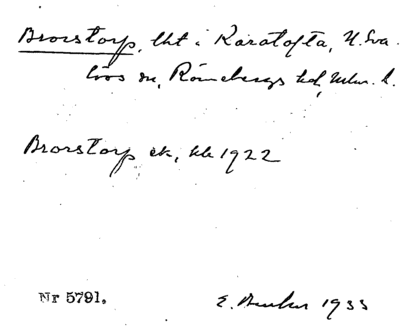 Brorstorp, lht i Karatofta, N. Sva-
löos sn, Rönnebergs hd, Mlm. l.
Brorstorp ek, kb 1922
Nr 5791.
E. 1933